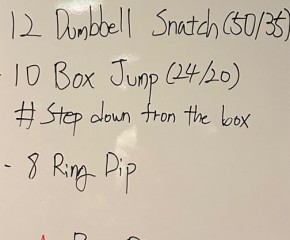 12 Dumbbell Snatch (50/35)
- 10 Box Jump (24/20)
# Step down from the box
- 8 Ring Dip